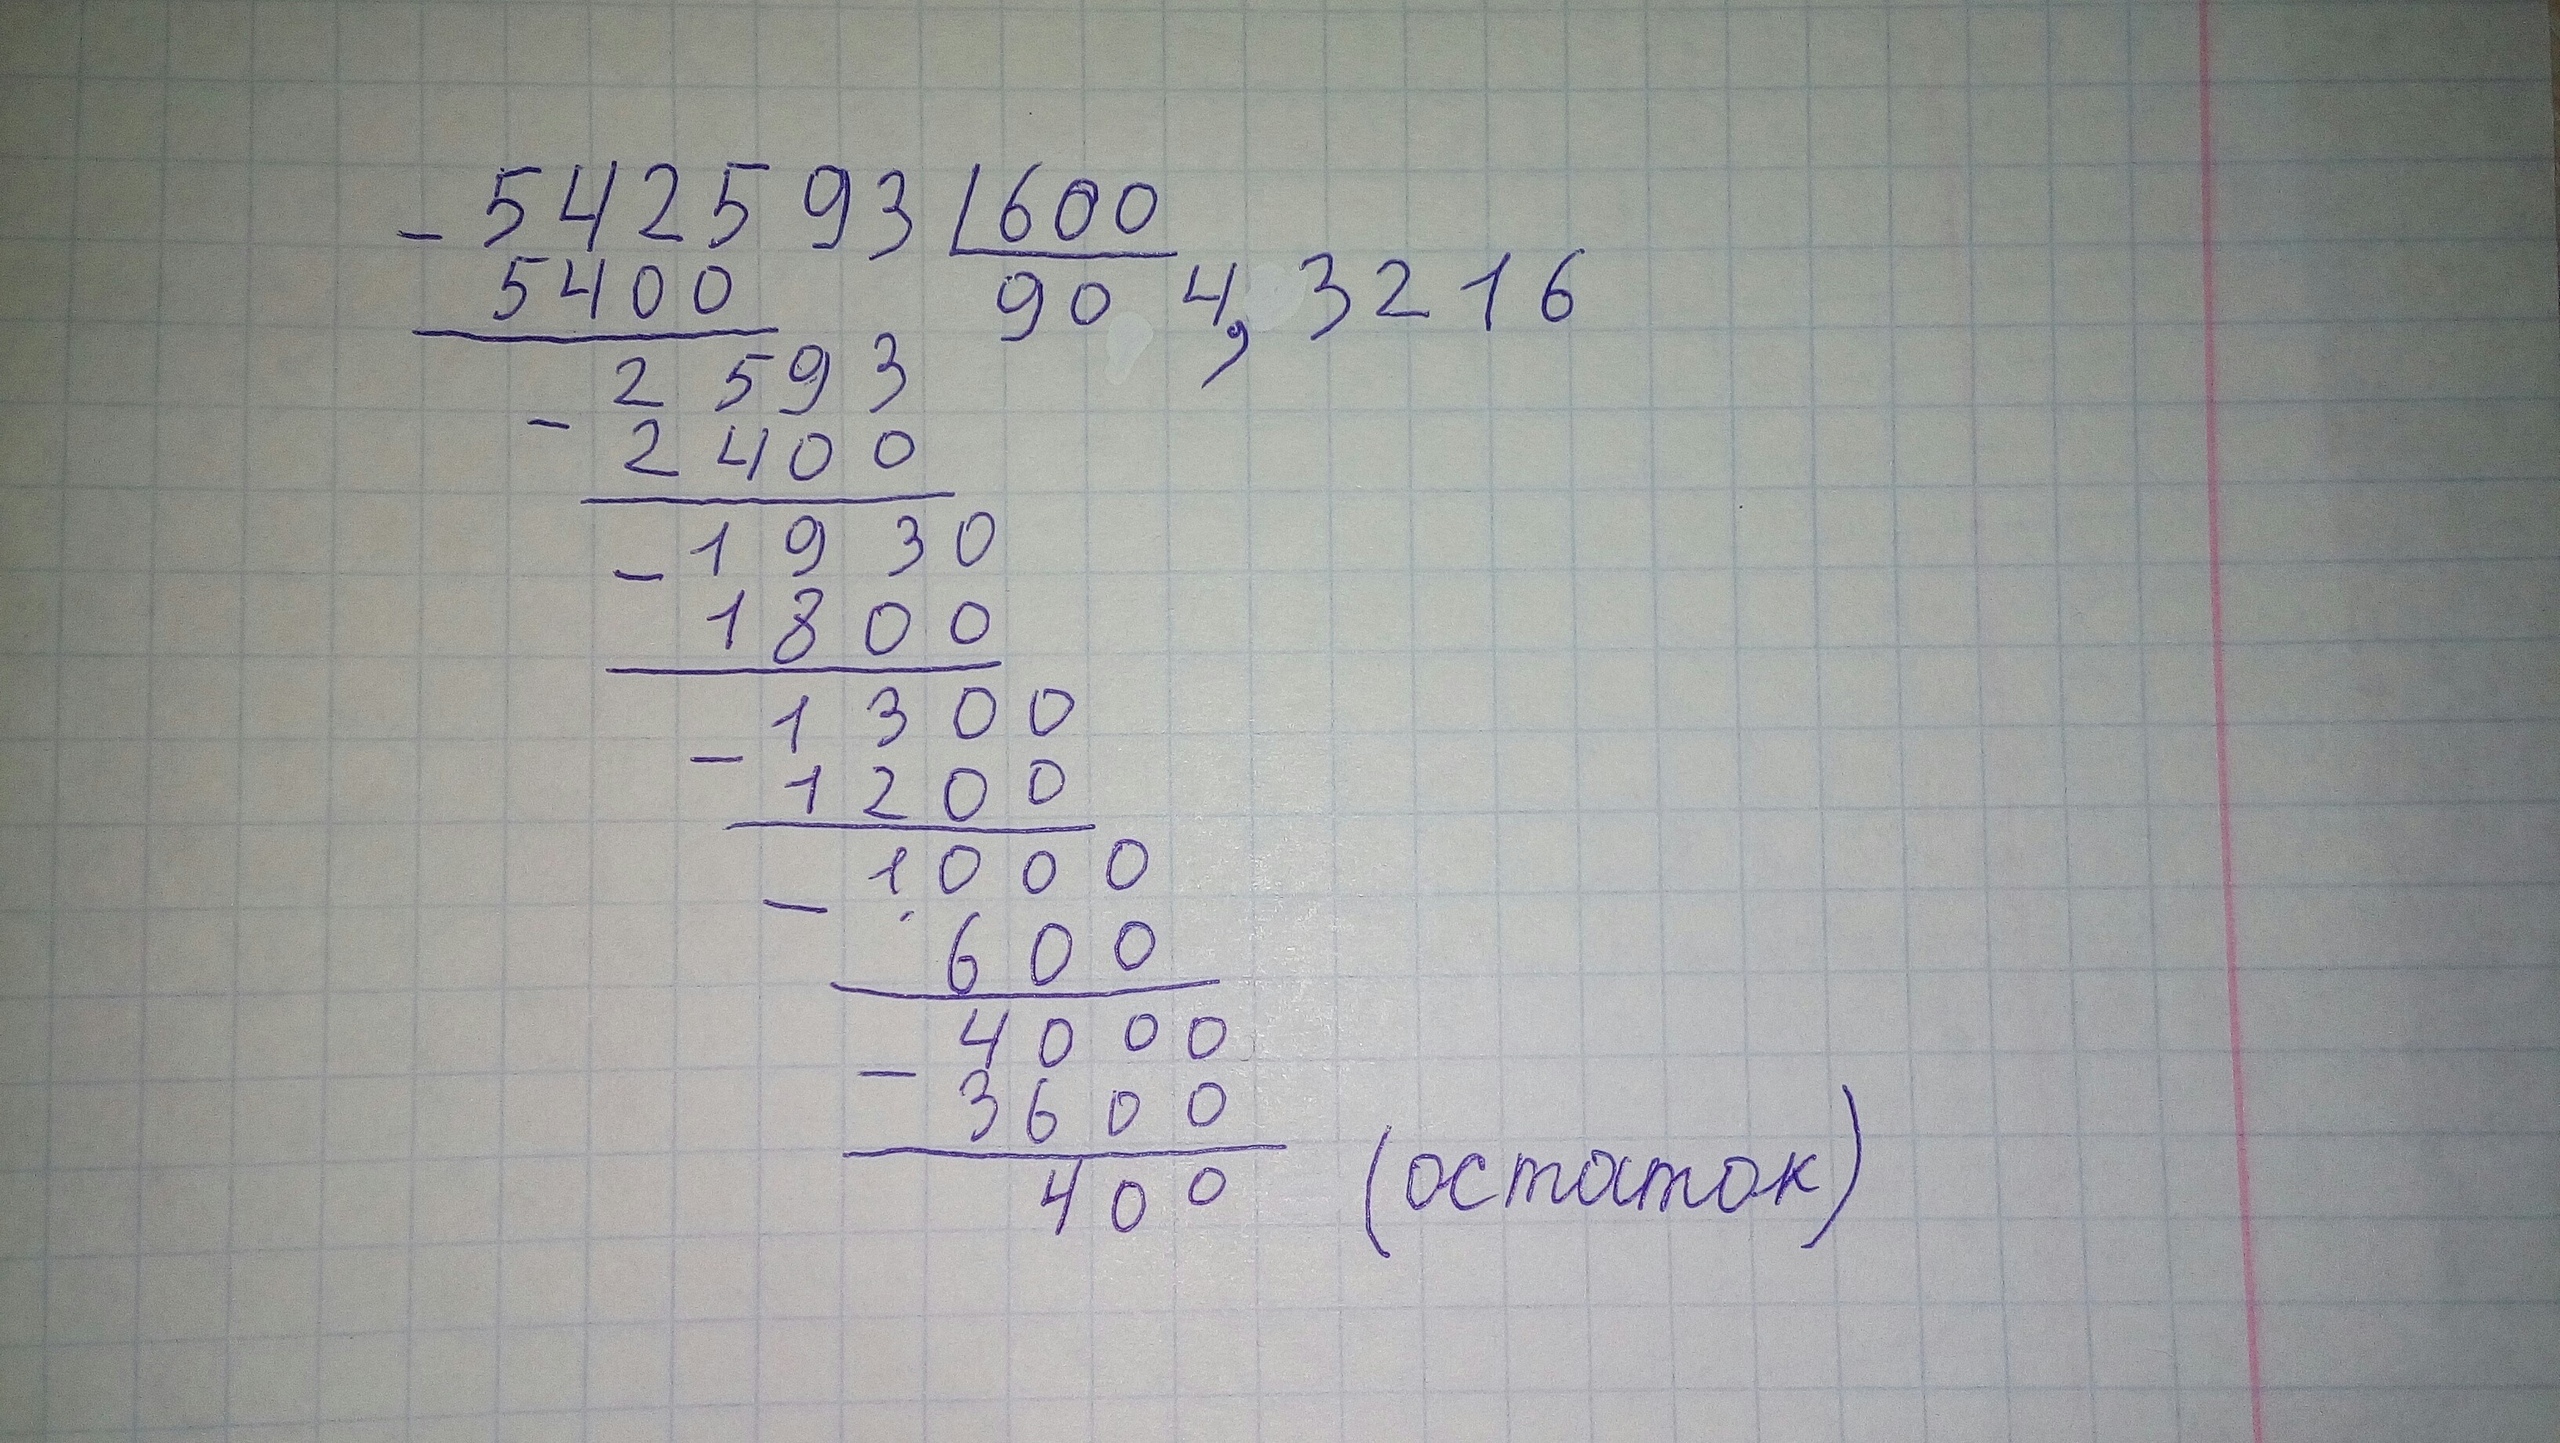 - 542593 | 600
5400 904,3216
2593
- 2400
- 1930
1800
- 1300
1200
- 1000
600
- 4000
3600
400 (остаток)